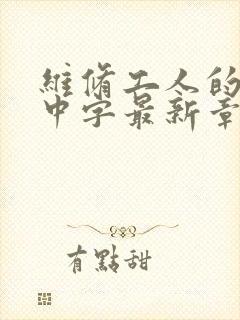 維脩工人的
中字最新章
有點甜